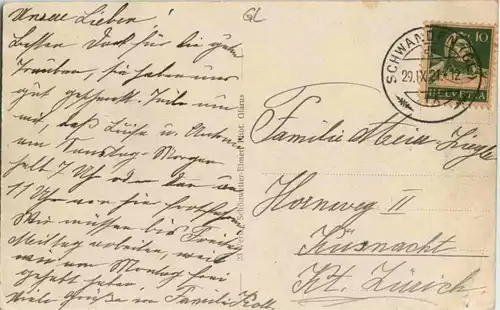 GL
Unsere Lieben!
Besten Dank für die guten
Trauben, sie haben uns
gut geschmeckt. Teile nun
mit, daß Luise u.
am Samstag-Morgen
halb 7 Uhr oder dann
11 Uhr von hier fortfahren.
Wir müssen bis Freitag
Mittag arbeiten, weil
wir am Montag frei
gehabt haben.
Viele Grüße in Familie
23 Verlag Schönwetter-Elmer, Glarus
SCHWANDEN (GL)
29.IX.21.-12
10
HELVETIA
Familie Ziegler
Hornweg II
Küsnacht
Kt. Zürich